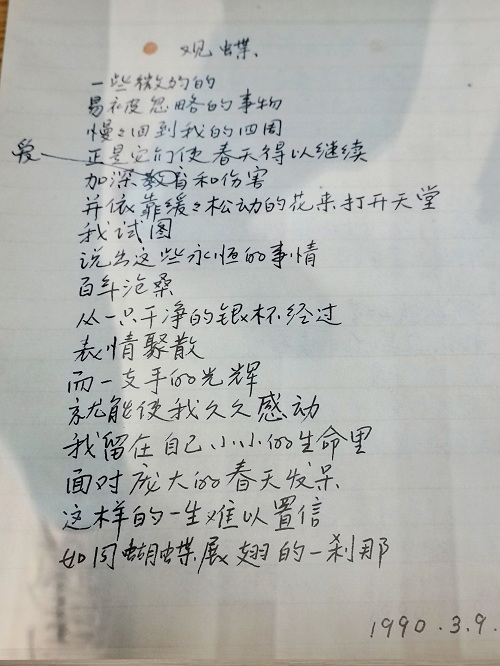 观蝶、
一些微小的
易被忽略的事物
慢慢回到我的四周
爱
正是它们使春天得以继续
加深教育和伤害
并依靠缓缓松动的花来打开天堂
我试图
说出这些永恒的事情
百年沧桑
从一只干净的银杯经过
表情聚散
而一支手的光辉
就能使我久久感动
我留在自己小小的生命里
面对庞大的春天发呆
这样的一生难以置信
如同蝴蝶展翅的一刹那
1990.3.9.